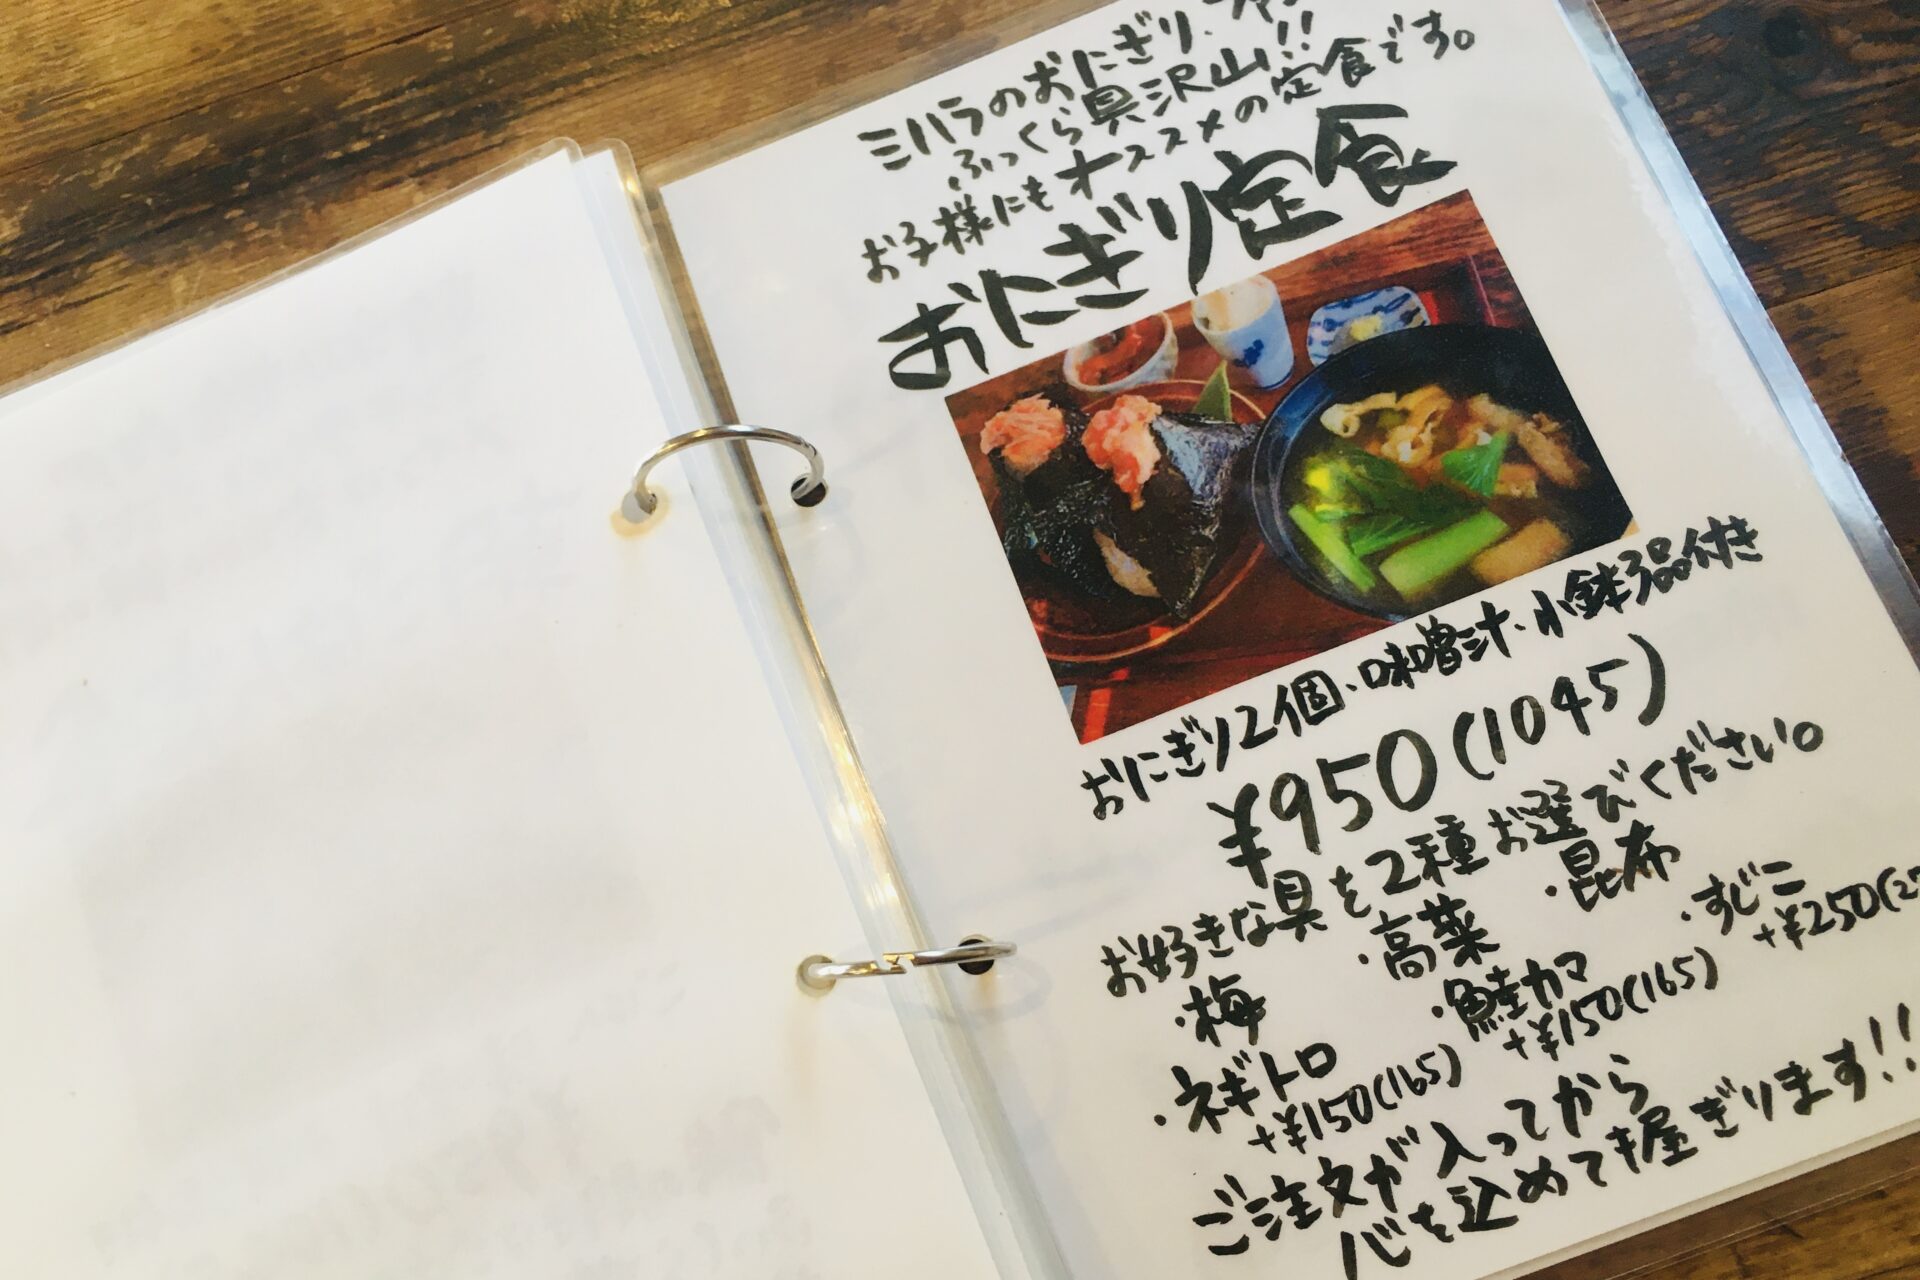 ミハラのおにぎり、
ふっくら具沢山!!
お子様にもオススメの定食です。
おにぎり定食
おにぎり2個、味噌汁、小鉢3品付き
¥950(1045)
お好きな具を2種お選びください。
・梅
・高菜
・昆布
・ネギトロ
+¥150(165)
・鮭カマ
+¥150(165)
・すじこ
+¥250(27
ご注文が入ってから
心を込めて握ぎります!!